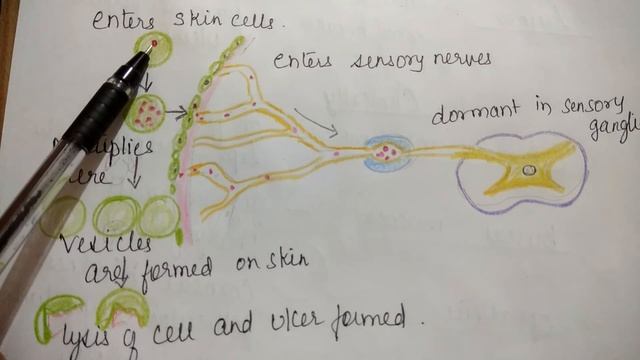 enters skin cells.
enters sensory nerves
dormant in sensory
Vesicles
are formed on skin
lysis of cell and ulcer formed.